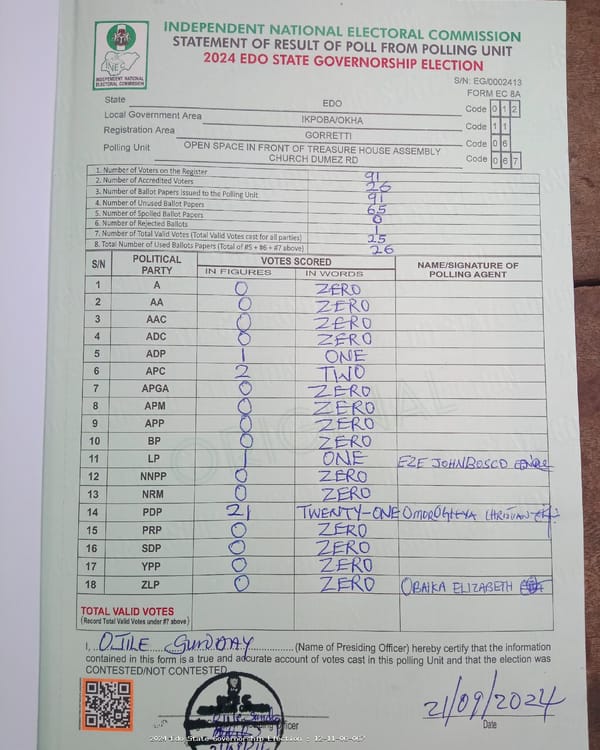 INDEPENDENT NATIONAL ELECTORAL COMMISSION
STATEMENT OF RESULT OF POLL FROM POLLING UNIT
2024 EDO STATE GOVERNORSHIP ELECTION
INEC
INDEPENDENT NATIONAL
ELECTORAL COMMISSION
S/N: EG/0002413
FORM EC 8A
State EDO Code 0 1 2
Local Government Area IKPOBA/OKHA Code 1 1
Registration Area GORRETTI Code 0 6
Polling Unit OPEN SPACE IN FRONT OF TREASURE HOUSE ASSEMBLY CHURCH DUMEZ RD Code 0 6 7
1. Number of Voters on the Register 91
2. Number of Accredited Voters 26
3. Number of Ballot Papers Issued to the Polling Unit 91
4. Number of Unused Ballot Papers 65
5. Number of Spoiled Ballot Papers 0
6. Number of Rejected Ballots 1
7. Number of Total Valid Votes (Total Valid Votes cast for all parties) 25
8. Total Number of Used Ballots Papers (Total of #5 + #6 + #7 above) 26
S/N POLITICAL PARTY VOTES SCORED NAME/SIGNATURE OF POLLING AGENT
IN FIGURES IN WORDS
1 A 0 ZERO
2 AA 0 ZERO
3 AAC 0 ZERO
4 ADC 0 ZERO
5 ADP 1 ONE
6 APC 2 TWO
7 APGA 0 ZERO
8 APM 0 ZERO
9 APP 0 ZERO
10 BP 0 ZERO
11 LP 1 ONE EZE JOHNBOSCO
12 NNPP 0 ZERO
13 NRM 0 ZERO
14 PDP 21 TWENTY-ONE OMOROGIEVA CHRISTIAN
15 PRP 0 ZERO
16 SDP 0 ZERO
17 YPP 0 ZERO
18 ZLP 0 ZERO OBAIKA ELIZABETH
TOTAL VALID VOTES
(Record Total Valid Votes under #7 above)
ORIGINAL
I, OJILE SUNDAY (Name of Presiding Officer) hereby certify that the information
contained in this form is a true and adcurate account of votes cast in this polling Unit and that the election was
CONTESTED/NOT CONTESTED
21/09/2024
Date
2024 Edo State Governorship Election : 12-11-06-067